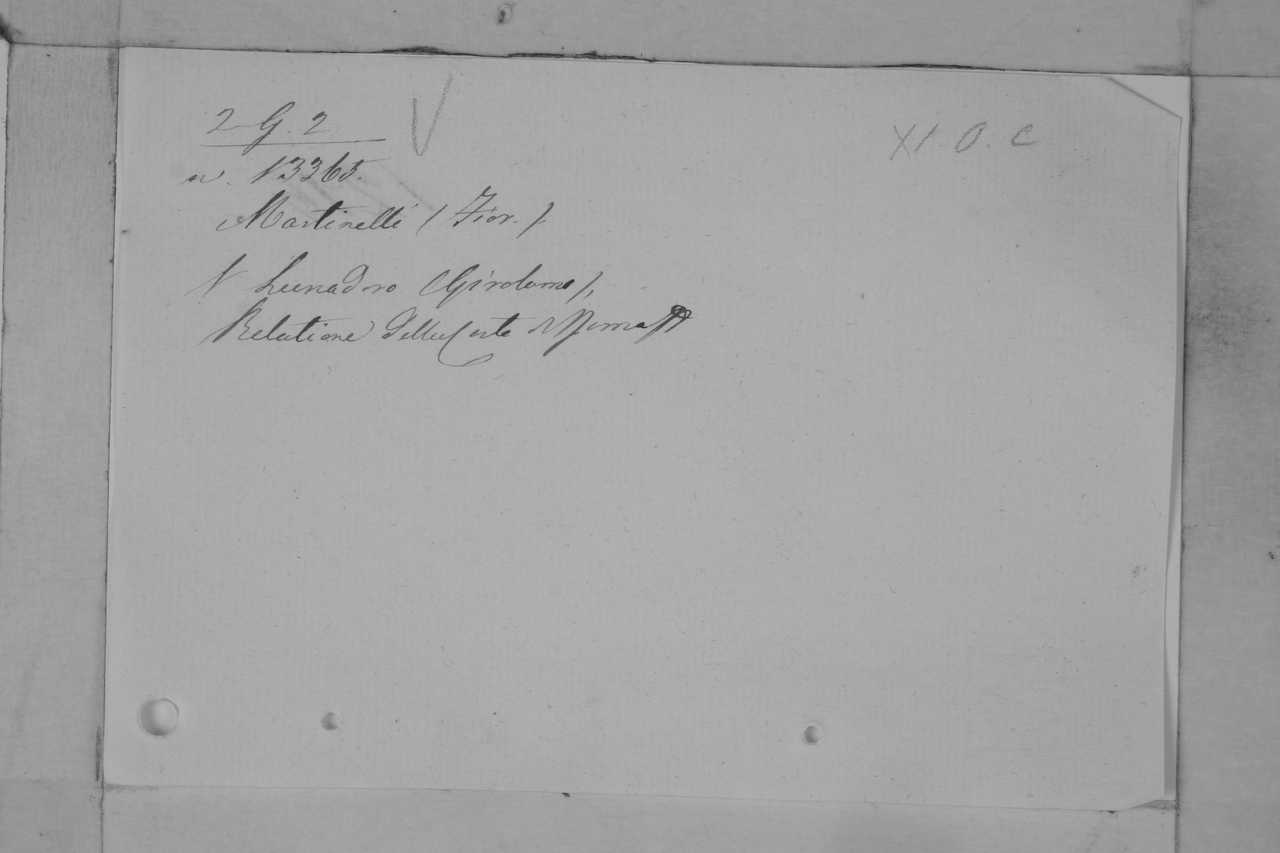 2-G. 2
XI. O. C
n. 13365.
Martinelli (Fior.)
V Lunadoro (Girolamo),
Relatione della Corte di Roma